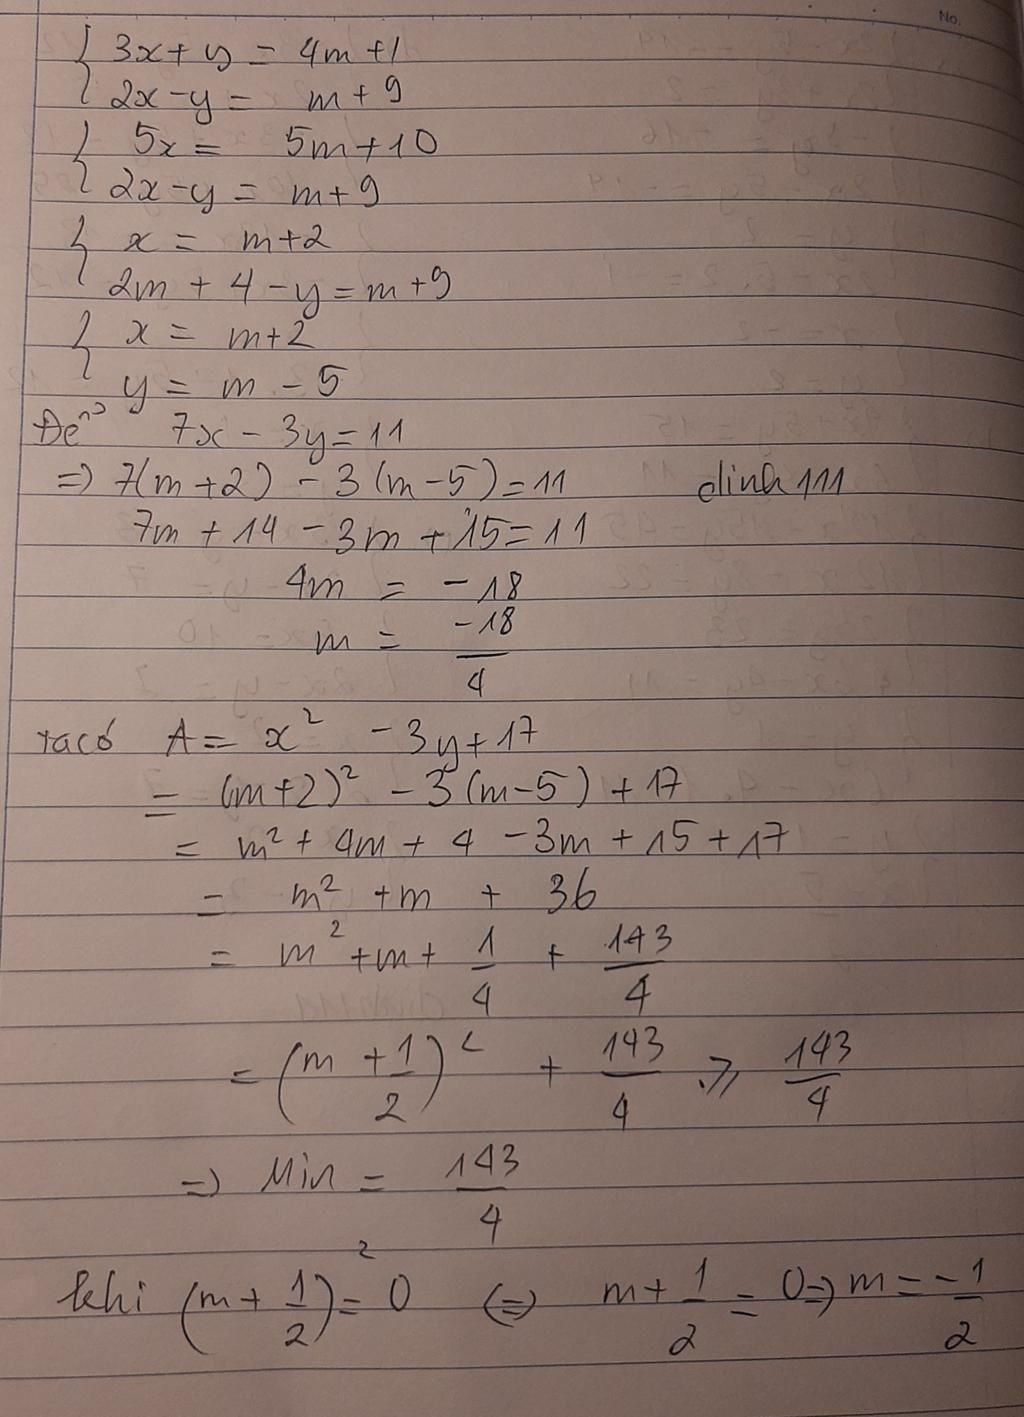 No.
{ 3x + y = 4m + 1
{ 2x - y = m + 9
{ 5x = 5m + 10
{ 2x - y = m + 9
{ x = m + 2
{ 2m + 4 - y = m + 9
{ x = m + 2
{ y = m - 5
Để 7x - 3y = 11
=> 7(m + 2) - 3(m - 5) = 11 dinh 111
7m + 14 - 3m + 15 = 11
4m = -18
m = -18/4
Ta có A = x² - 3y + 17
= (m + 2)² - 3(m - 5) + 17
= m² + 4m + 4 - 3m + 15 + 17
= m² + m + 36
= m² + m + 1/4 + 143/4
= (m + 1/2)² + 143/4 ⩾ 143/4
=> Min = 143/4
khi (m + 1/2)² = 0 <=> m + 1/2 = 0 => m = -1/2